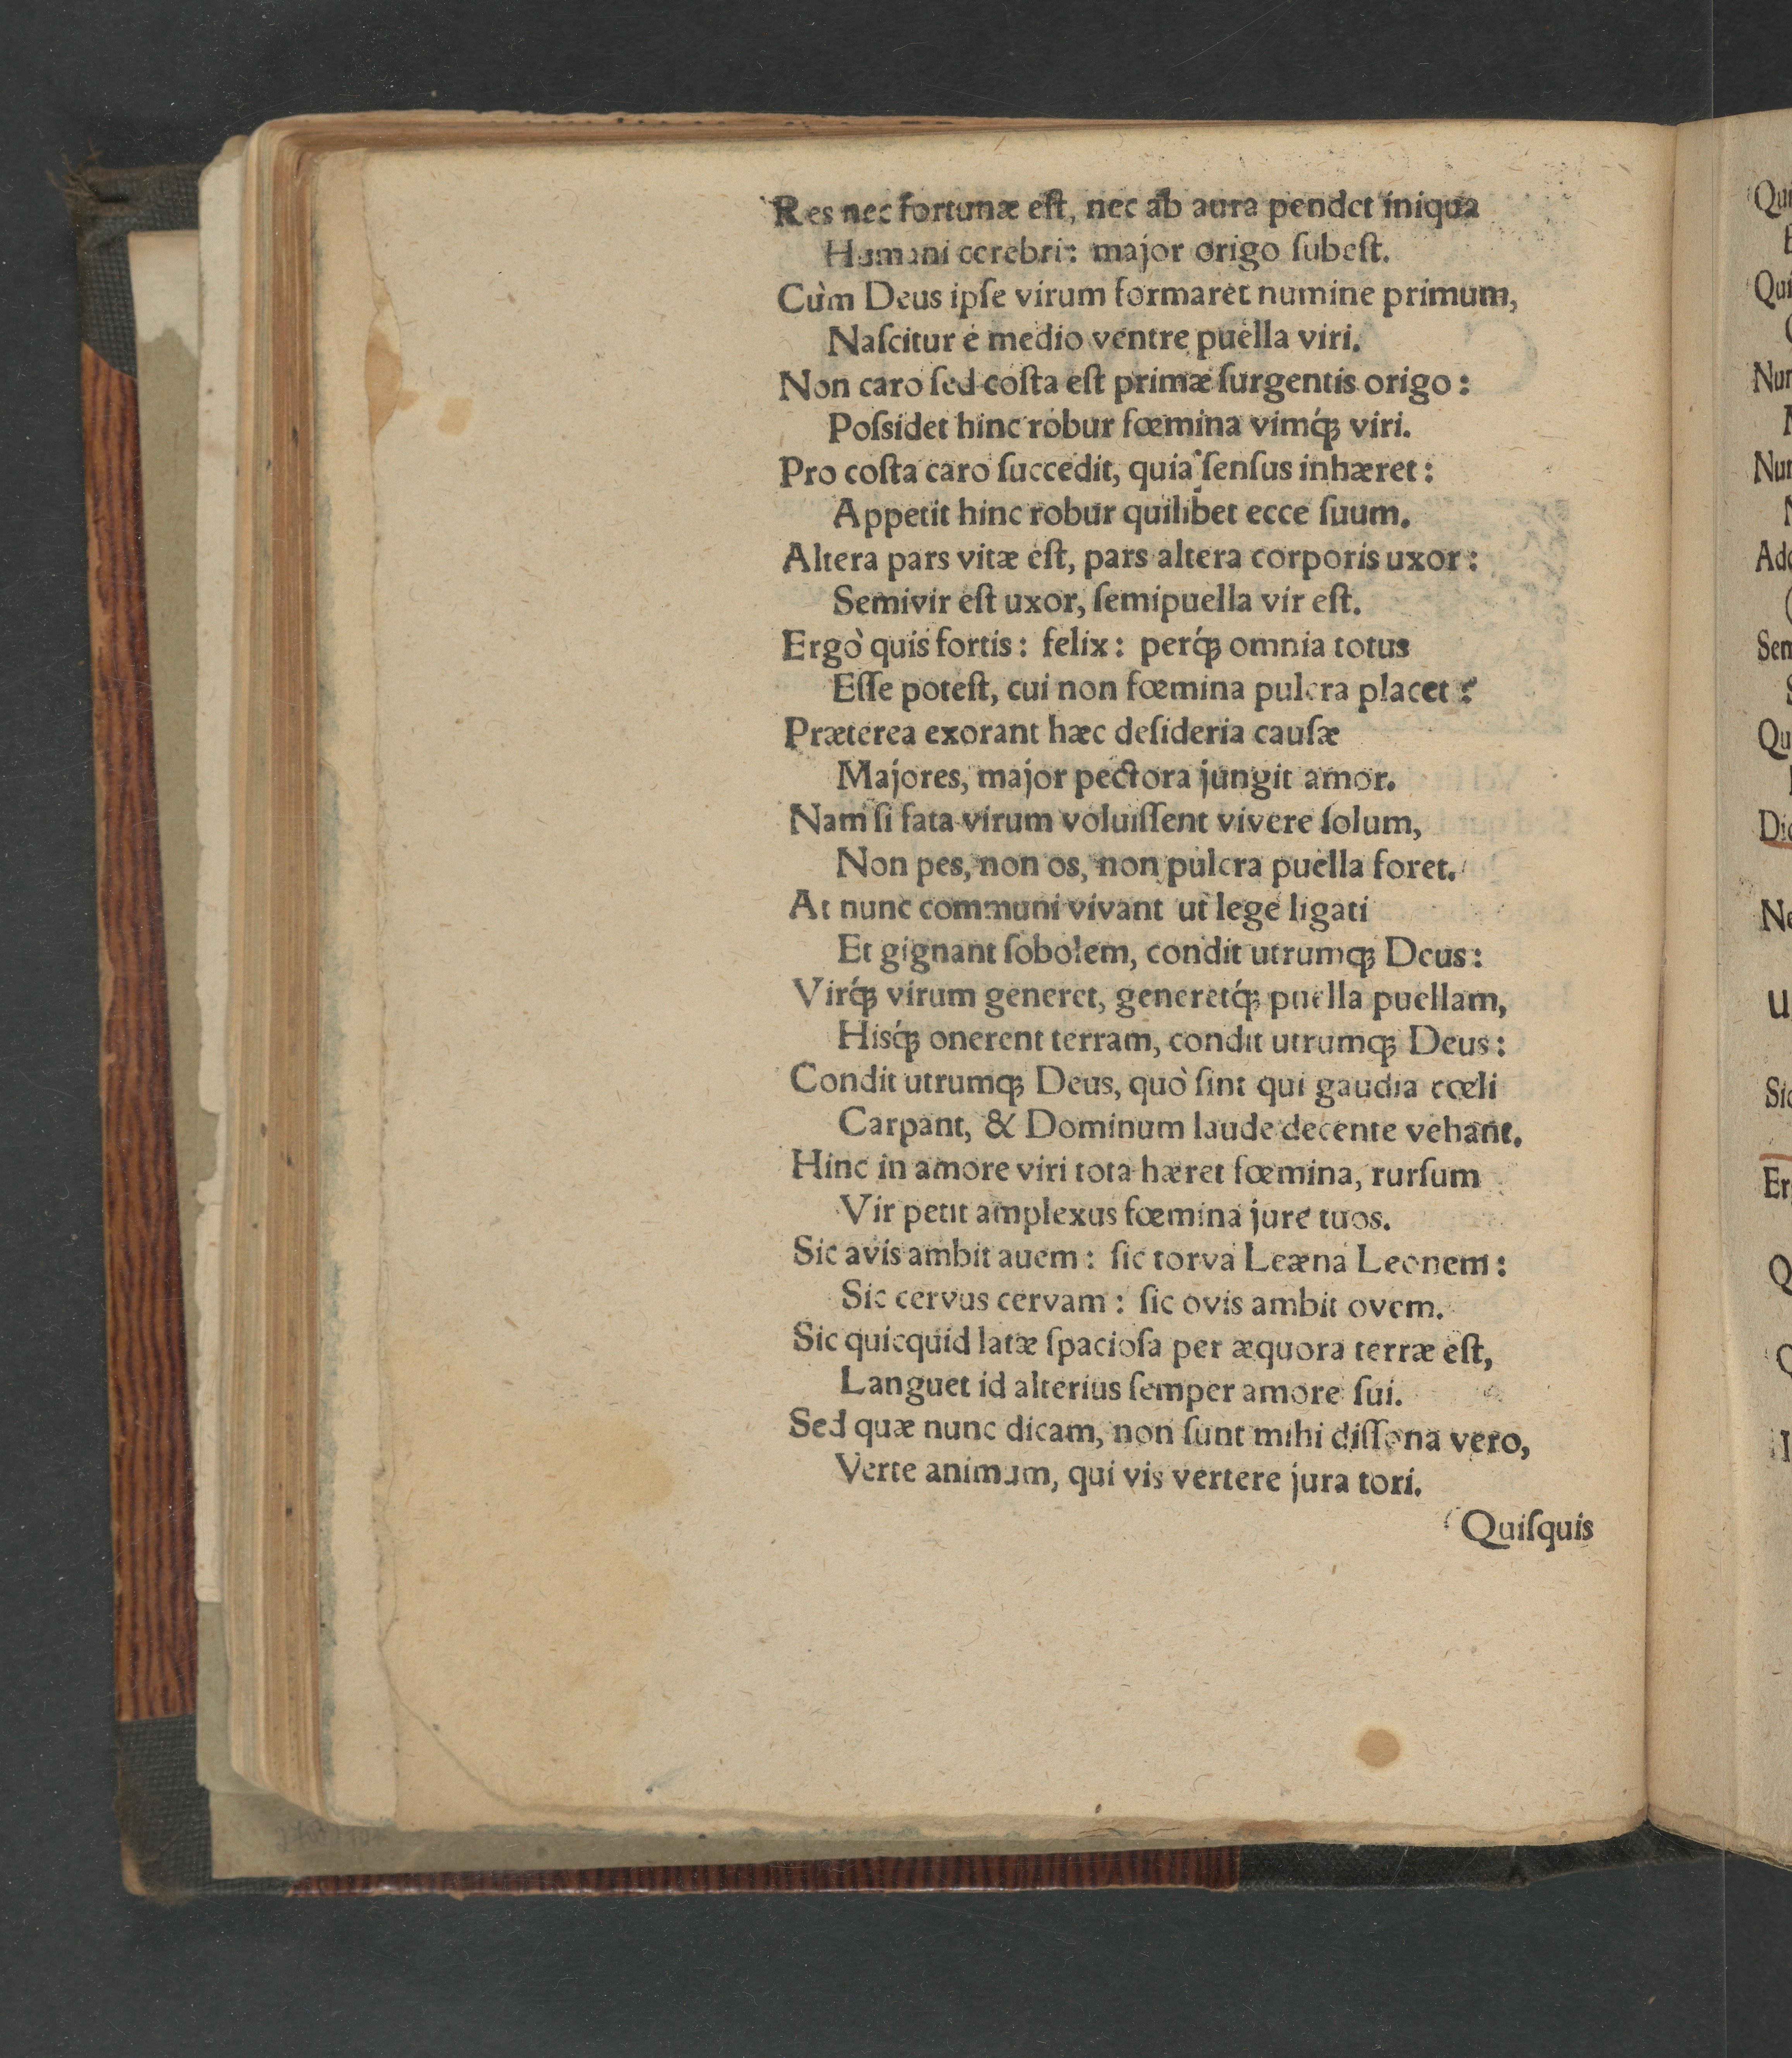 Res nec fortunæ eſt, nec ab aura pendet iniqua
Humani cerebri: major origo ſubeſt.
Cùm Deus ipſe virum formaret numine primum,
Naſcitur è medio ventre puella viri.
Non caro ſed coſta eſt primæ ſurgentis origo:
Poſsidet hinc robur fœmina vimq́; viri.
Pro coſta caro ſuccedit, quia ſenſus inhæret:
Appetit hinc robur quilibet ecce ſuum.
Altera pars vitæ eſt, pars altera corporis uxor:
Semivir eſt uxor, ſemipuella vir eſt.
Ergò quis fortis: felix: perq́; omnia totus
Eſſe poteſt, cui non fœmina pulcra placet?
Præterea exorant hæc deſideria cauſæ
Majores, major pectora jungit amor.
Nam ſi fata virum voluiſſent vivere ſolum,
Non pes, non os, non pulcra puella foret.
At nunc communi vivant ut lege ligati
Et gignant ſobolem, condit utrumq; Deus:
Virq́; virum generet, generetq́; puella puellam,
Hisq́; onerent terram, condit utrumq; Deus:
Condit utrumq; Deus, quò ſint qui gaudia cœli
Carpant, & Dominum laude decente vehant.
Hinc in amore viri tota hæret fœmina, rurſum
Vir petit amplexus fœmina jure tuos.
Sic avis ambit auem: ſic torva Leæna Leonem:
Sic cervus cervam: ſic ovis ambit ovem.
Sic quicquid latæ ſpacioſa per æquora terræ eſt,
Languet id alterius ſemper amore ſui.
Sed quæ nunc dicam, non ſunt mihi diſſona vero,
Verte animum, qui vis vertere jura tori.
Quiſquis